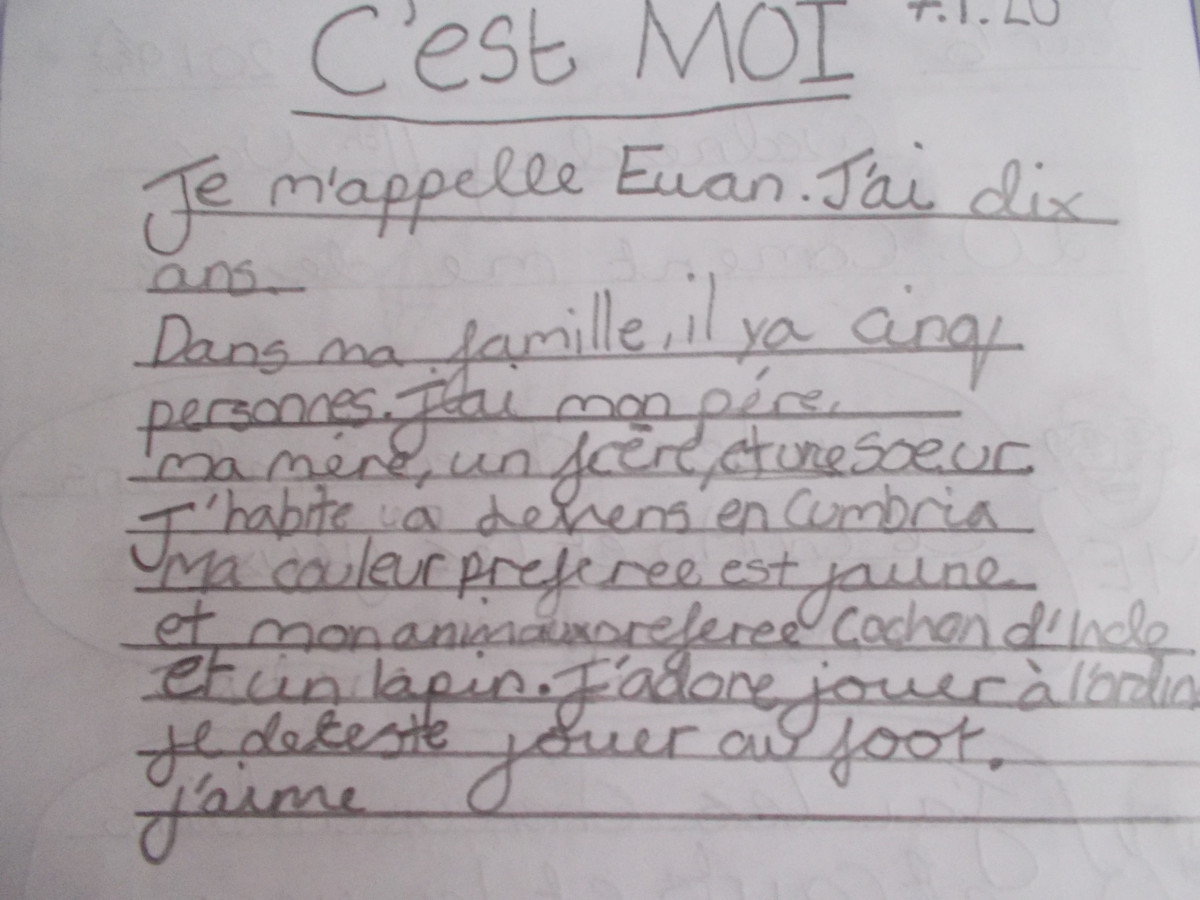 C'est MOI 7.1.20
Je m'appelle Euan. J'ai dix
ans.
Dans ma famille, il ya cinq
personnes. J'ai mon pére,
ma mère, un frère, et une soeur
J'habite a en Cumbria
Ma couleur preferee est jaune
et mon animaux preferee Cochon d'Inde
et un lapin. J'adore jouer à l'ordin
je deteste jouer au foot.
j'aime